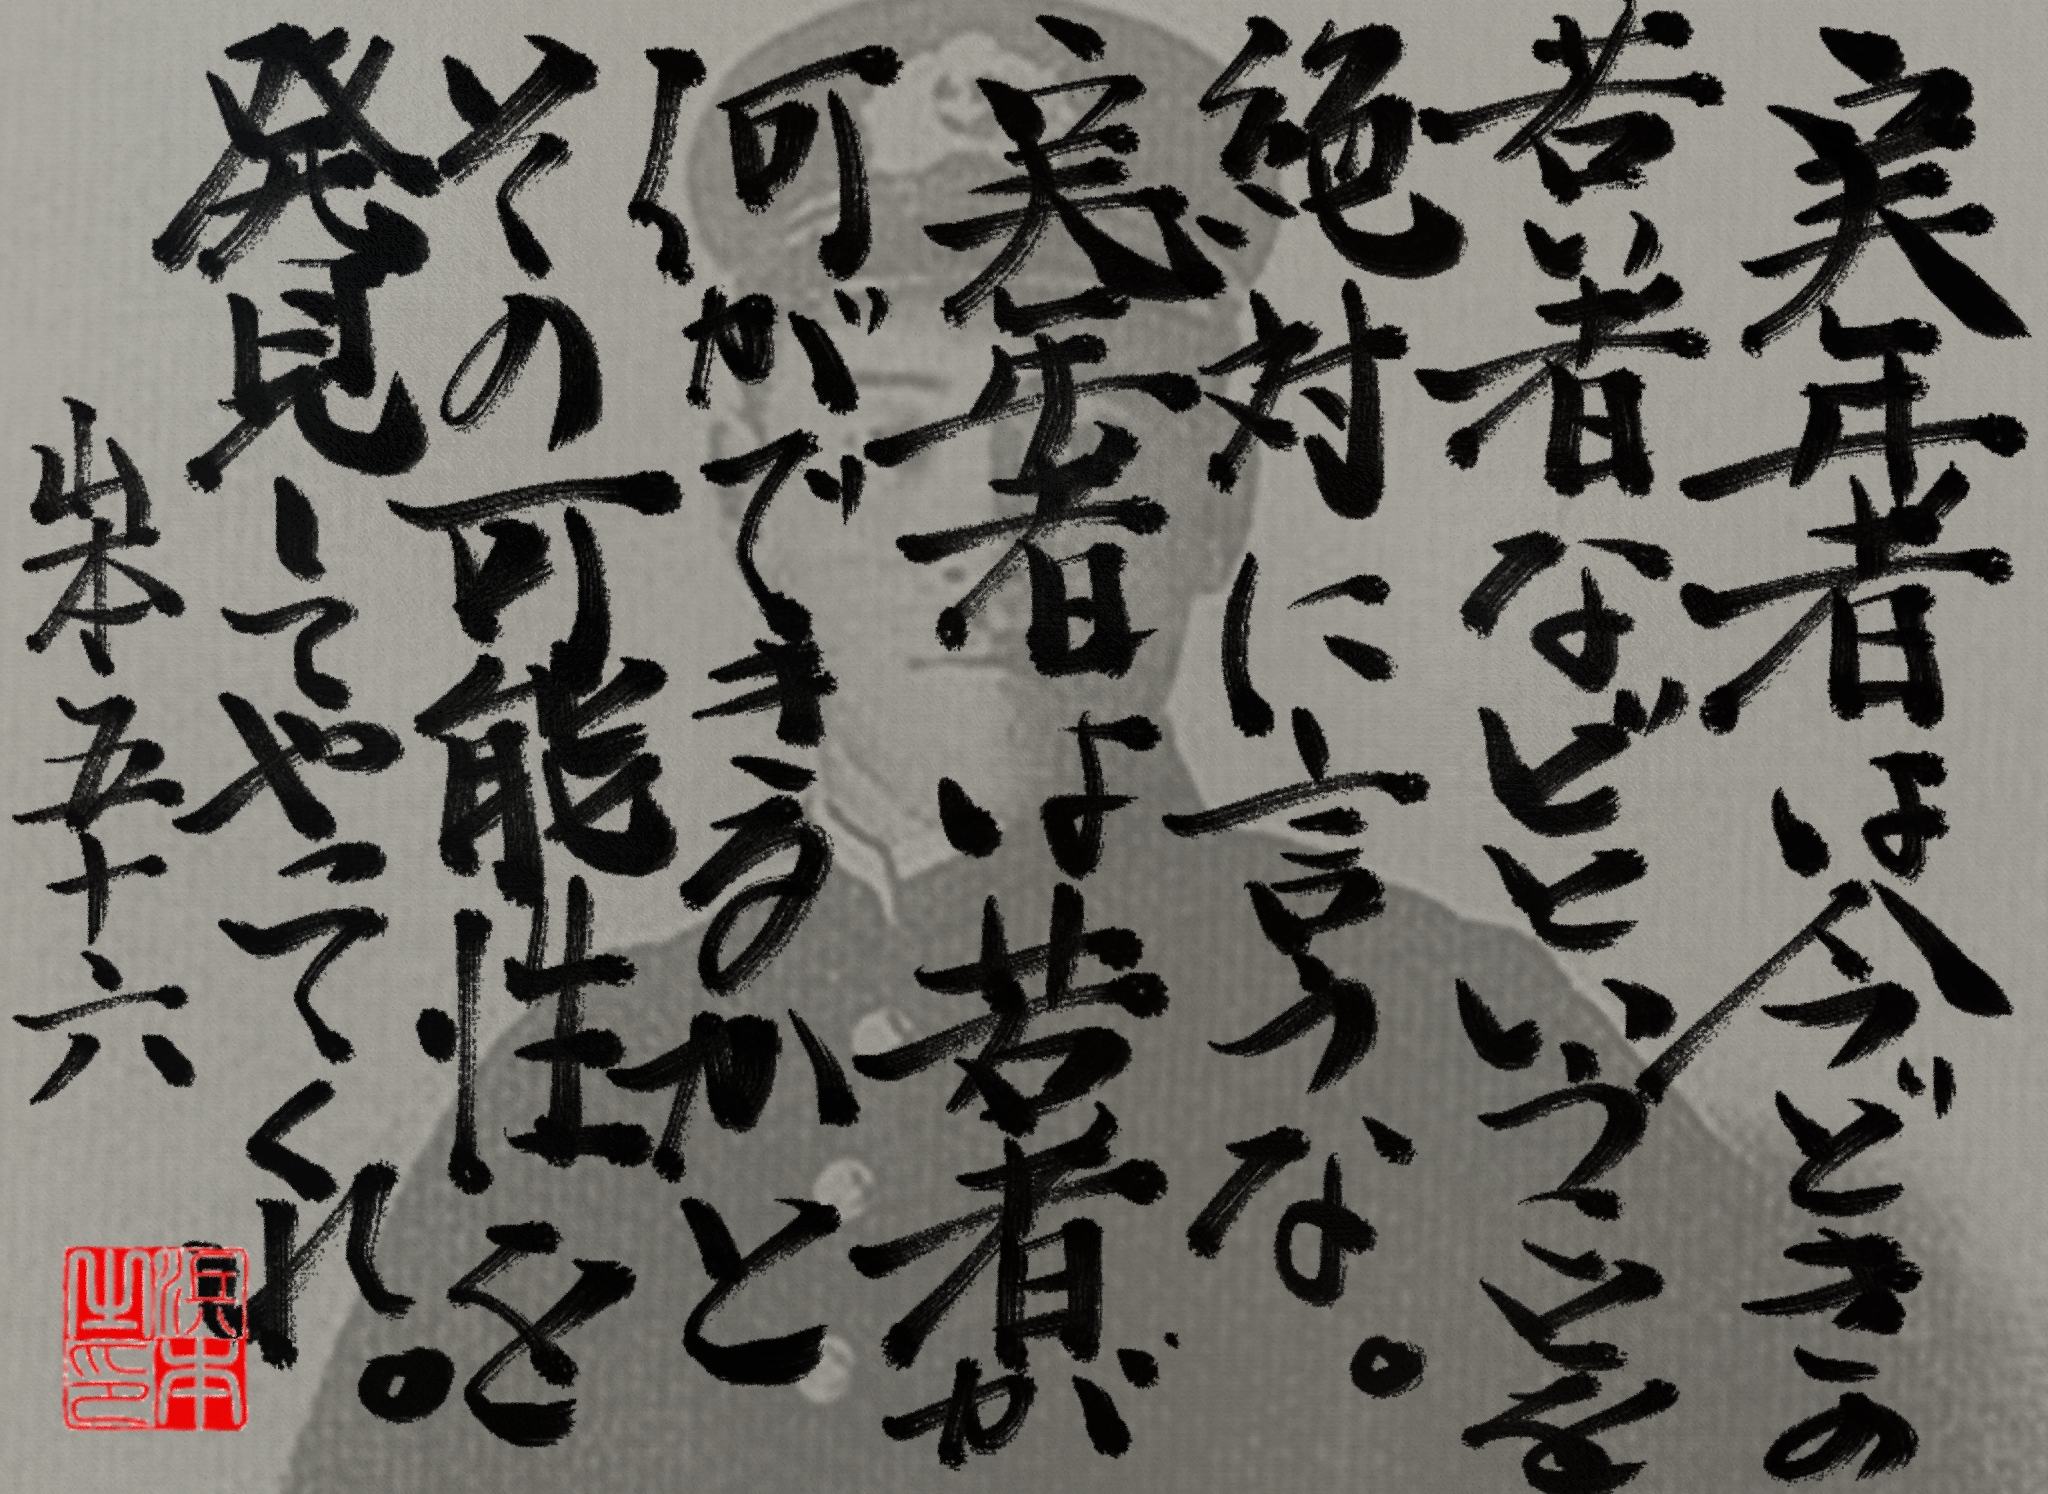 実年者は今どきの
若い者などということを
絶対に言うな。
実年者よ、若者が
何ができるかと
その可能性を
発見してやってくれ。
山本五十六
浜本之印